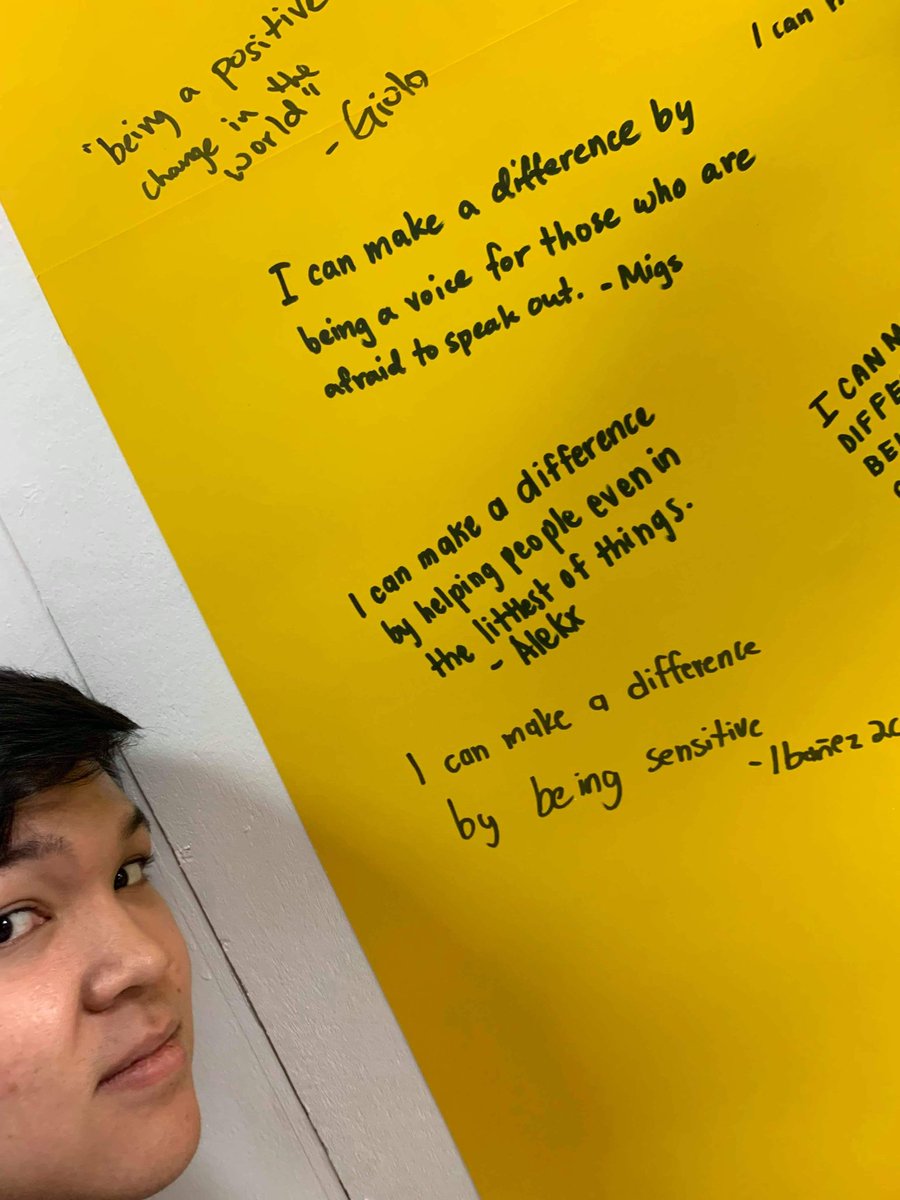 "being a positive
change in the
world"
- Giolo
I can
I can make a difference by
being a voice for those who are
afraid to speak out. - Migs
I CAN
DIFFE
BE
I can make a difference
by helping people even in
the littlest of things.
- Alekx
I can make a difference
by being sensitive
- Ibañez